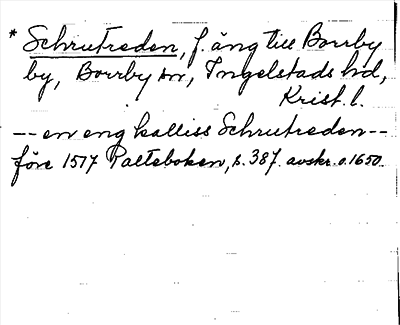 * Schrutreden, f. äng till Borrby
by, Borrby sn, Ingelstads hd,
Krist. l.
-- en eng kalliss Schrutreden --
före 1517 Palteboken, s. 387. avskr. o. 1650.